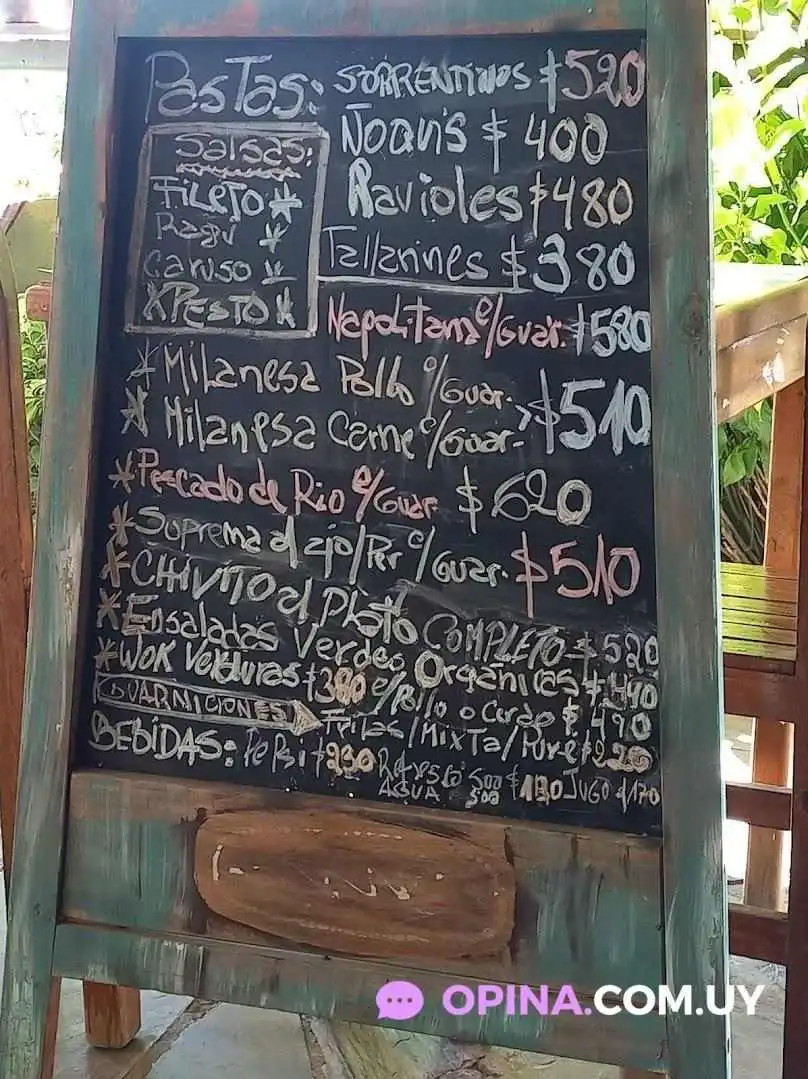 Pastas: Sorrentinos $520
Ñoquis $400
Ravioles $480
Tallarines $380
Salsas:
Fileto *
Ragu *
Caruso *
XPesto *
Napolitana c/Guar. $580
* Milanesa Pollo c/Guar.
* Milanesa Carne c/Guar. > $510
* Pescado de Rio c/Guar $620
* Suprema al ajo/Per c/Guar. $510
* CHIVITO al Plato COMPLETO $520
* Ensaladas Verdes Orgánicas $440
* WOK Verduras $380 c/Pollo o Cerdo $490
GUARNICIONES Fritas/Mixta/Pure $220
BEBIDAS: Pepsi $230 Refresco 500 AGUA 500 $130 JUGO $170
OPINA.COM.UY